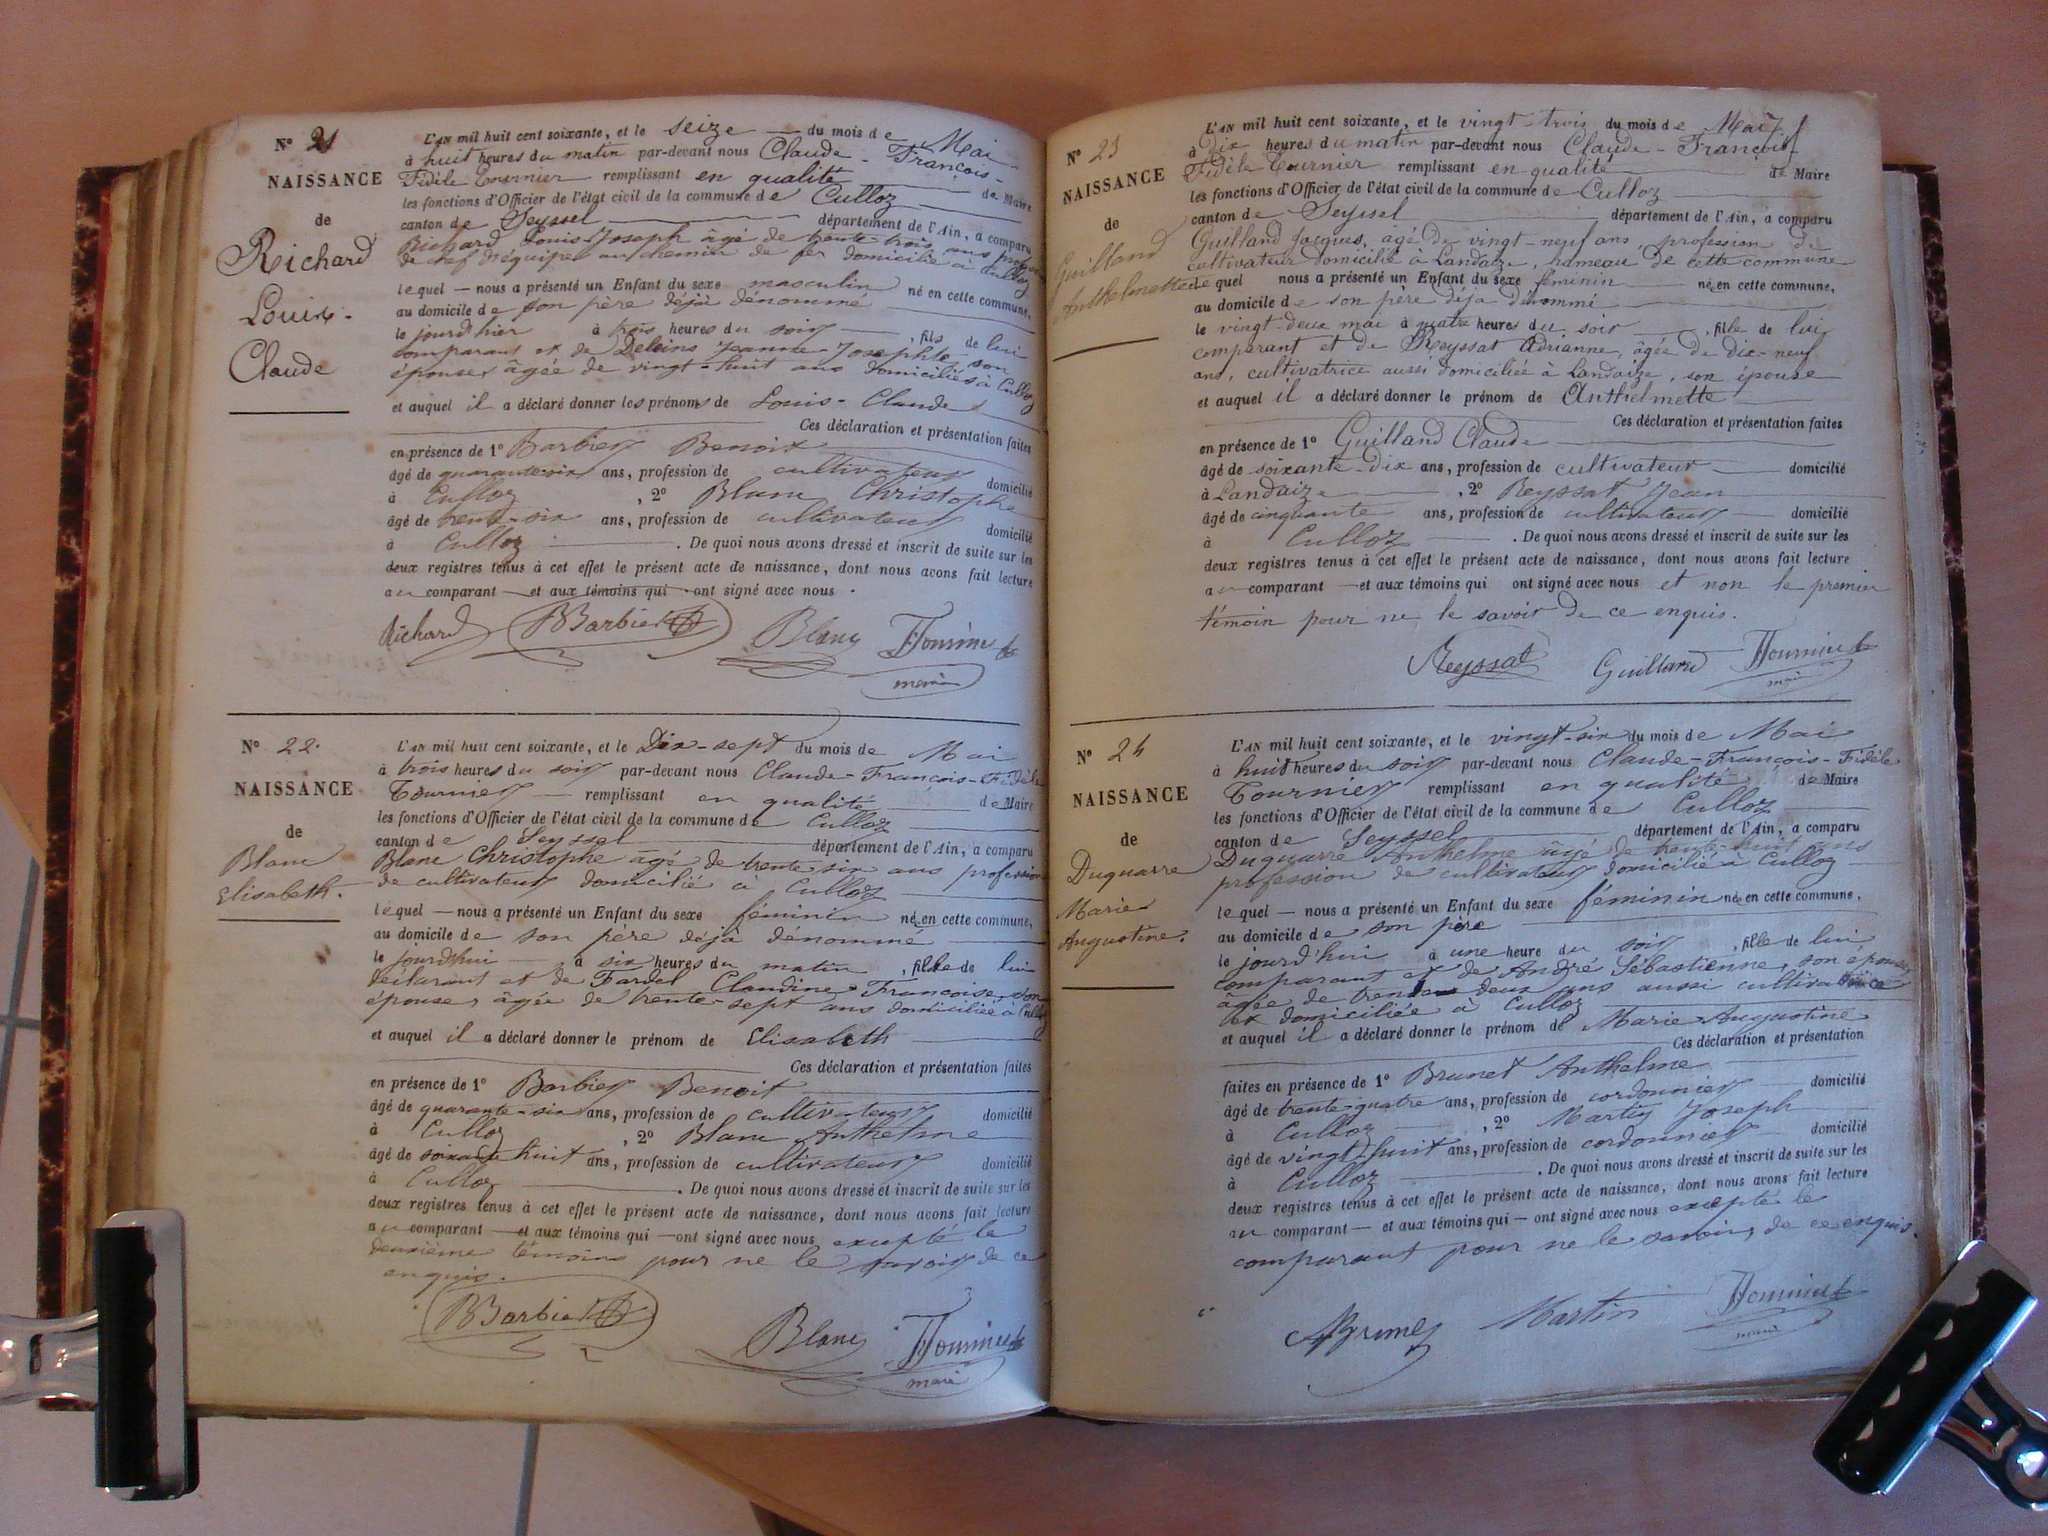 N° 21
NAISSANCE
de
Richard
Louis-
Claude
L'AN mil huit cent soixante, et le seize du mois de Mai
à huit heures du matin par-devant nous Claude-François-
Fidèle Tournier remplissant en qualité de Maire
les fonctions d'Officier de l'état civil de la commune de Culloz
canton de Seyssel département de l'Ain, a comparu
Richard Louis Joseph âgé de trente-trois ans profession
de chef d'équipe au chemin de fer domicilié à Culloz
lequel nous a présenté un Enfant du sexe masculin né en cette commune,
au domicile de son père déjà dénommé
le jourd'hier à trois heures du soir, fils de lui
comparant et de Deleins Jeanne-Josephte son
épouse, âgée de vingt-huit ans domiciliés à Culloz
et auquel il a déclaré donner les prénoms de Louis-Claude
Ces déclaration et présentation faites
en présence de 1° Barbier Benoit
âgé de quarante-six ans, profession de cultivateur domicilié
à Culloz, 2° Blanc Christophe
âgé de trente-six ans, profession de cultivateur domicilié
à Culloz. De quoi nous avons dressé et inscrit de suite sur les
deux registres tenus à cet effet le présent acte de naissance, dont nous avons fait lecture
au comparant et aux témoins qui ont signé avec nous.
Richard BBarbier Blanc Tournier
maire
N° 22.
NAISSANCE
de
Blanc
Elisabeth.
L'AN mil huit cent soixante, et le Dix-sept du mois de Mai
à trois heures du soir par-devant nous Claude-François-Fidèle
Tournier remplissant en qualité de Maire
les fonctions d'Officier de l'état civil de la commune de Culloz
canton de Seyssel département de l'Ain, a comparu
Blanc Christophe âgé de trente six ans profession
de cultivateur domicilié à Culloz
lequel nous a présenté un Enfant du sexe féminin née en cette commune,
au domicile de son père déjà dénommé
le jourd'hui à six heures du matin, fille de lui
déclarant et de Fardel Claudine-Françoise, son
épouse, âgée de trente-sept ans domiciliée à Culloz
et auquel il a déclaré donner le prénom de Elisabeth
Ces déclaration et présentation faites
en présence de 1° Barbier Benoit
âgé de quarante-six ans, profession de cultivateur domicilié
à Culloz, 2° Blanc Anthelme
âgé de soixante huit ans, profession de cultivateur domicilié
à Culloz. De quoi nous avons dressé et inscrit de suite sur les
deux registres tenus à cet effet le présent acte de naissance, dont nous avons fait lecture
au comparant et aux témoins qui ont signé avec nous excepté le
deuxième témoins pour ne le savoir de ce
enquis.
BBarbier Blanc Tournier
maire
N° 23
NAISSANCE
de
Guilland
Anthelmette
L'AN mil huit cent soixante, et le vingt-trois du mois de Mai
à dix heures du matin par-devant nous Claude-François
Fidèle Tournier remplissant en qualité de Maire
les fonctions d'Officier de l'état civil de la commune de Culloz
canton de Seyssel département de l'Ain, a comparu
Guilland Jacques, agé de vingt-neuf ans, profession de
cultivateur domicilié à Landaize, hameau de cette commune
lequel nous a présenté un Enfant du sexe féminin née en cette commune,
au domicile de son père déja dénommé
le vingt-deux mai à quatre heures du soir, fille de lui
comparant et de Reyssat Adrianne, âgée de dix-neuf
ans, cultivatrice aussi domiciliée à Landaize, son épouse
et auquel il a déclaré donner le prénom de Anthelmette
Ces déclaration et présentation faites
en présence de 1° Guilland Claude
âgé de soixante-dix ans, profession de cultivateur domicilié
à Landaize, 2° Reyssat Jean
âgé de cinquante ans, profession de cultivateur domicilié
à Culloz. De quoi nous avons dressé et inscrit de suite sur les
deux registres tenus à cet effet le présent acte de naissance, dont nous avons fait lecture
au comparant et aux témoins qui ont signé avec nous et non le premier
témoin pour ne le savoir de ce enquis.
Reyssat Guilland Tournier
maire
N° 24
NAISSANCE
de
Duquarre
Marie
Augustine.
L'AN mil huit cent soixante, et le vingt-six du mois de Mai
à huit heures du soir par-devant nous Claude-François-Fidèle
Tournier remplissant en qualité de Maire
les fonctions d'Officier de l'état civil de la commune de Culloz
canton de Seyssel département de l'Ain, a comparu
Duquarre Anthelme âgé de trente-huit ans
profession de cultivateur domicilié à Culloz
lequel nous a présenté un Enfant du sexe féminin née en cette commune,
au domicile de son père
le jourd'hui à une heure du soir, fille de lui
comparant et de André Sébastienne, son épouse,
âgée de trente deux ans aussi cultivatrice
et domiciliée à Culloz
et auquel il a déclaré donner le prénom de Marie-Augustine
Ces déclaration et présentation
faites en présence de 1° Brunet Anthelme
âgé de trente-quatre ans, profession de cordonnier domicilié
à Culloz, 2° Martin Joseph
âgé de vingt-huit ans, profession de cordonnier domicilié
à Culloz. De quoi nous avons dressé et inscrit de suite sur les
deux registres tenus à cet effet le présent acte de naissance, dont nous avons fait lecture
au comparant et aux témoins qui ont signé avec nous excepté le
comparant pour ne le savoir, de ce enquis.
Martin Tournier
maire